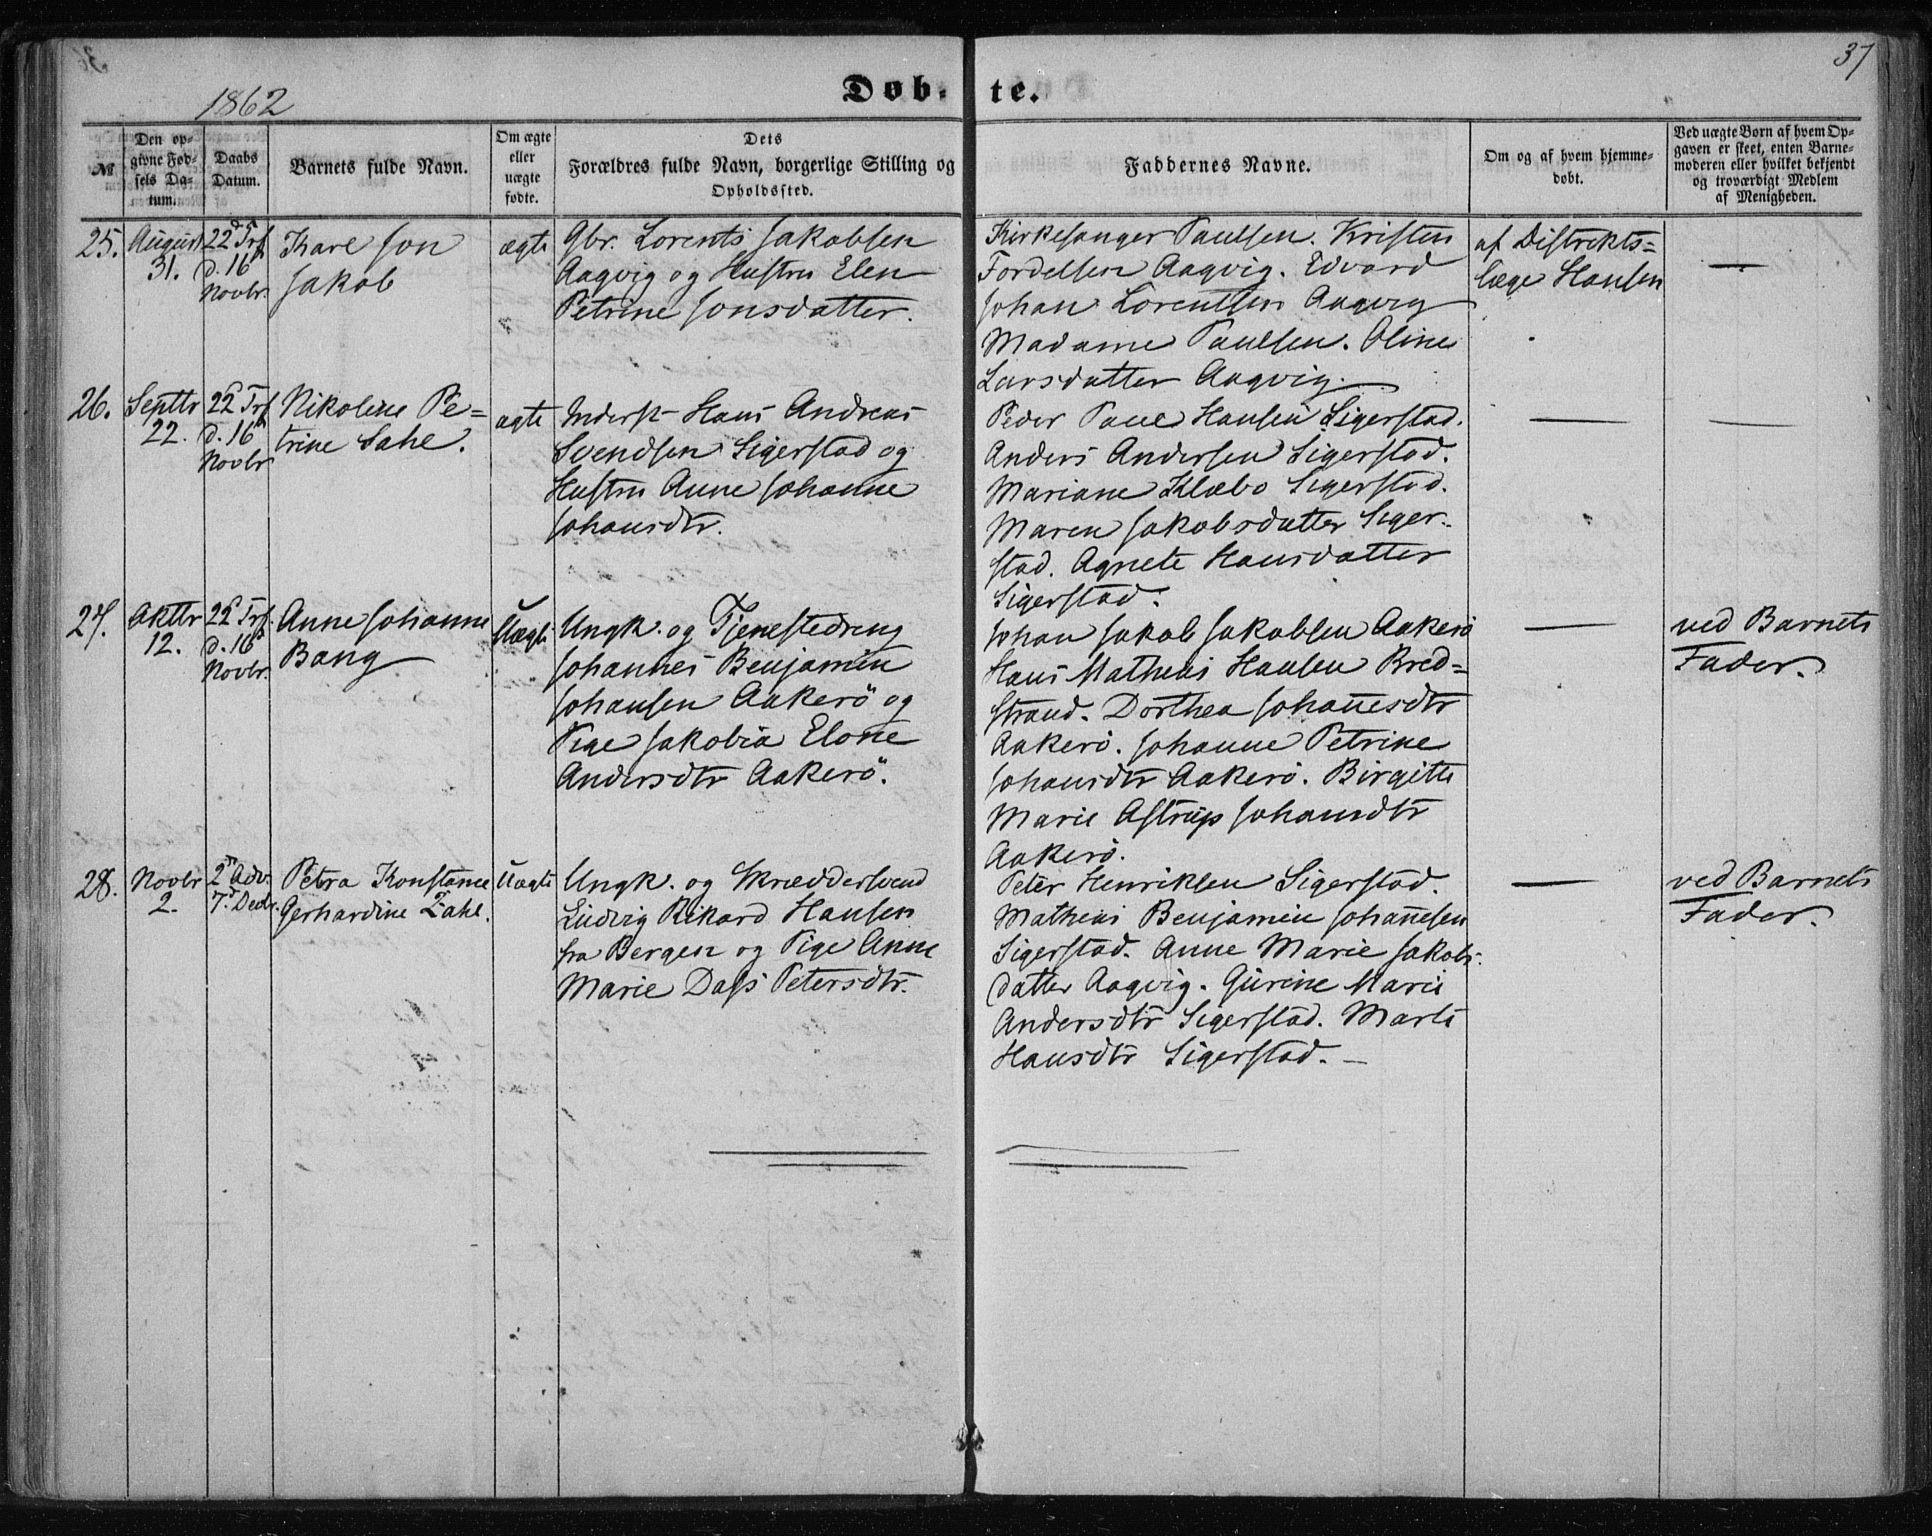 37
1862
Døb-te.
№
Den op-
givne Fød-
sels Da-
tum.
Daabs
Datum.
Barnets fulde Navn.
Om ægte
eller
uægte
fødte.
Dets
Forældres fulde Navn, borgerlige Stilling og
Opholdssted.
Faddernes Navne.
Om og af hvem hjemme-
døbt.
Ved uægte Børn af hvem Op-
gaven er skeet, enten Barne-
moderen eller hvilket bekjendt
og troværdigt Medlem
af Menigheden.
25.
August
31.
22d Trf
d. 16d
Novbr.
Kare Jon
Jakob
ægte
Gbr. Lorents Jakobsen
Aagvig og Hustru Elen
Petrine Jonsdatter.
Kirkesanger Paulsen. Kristen
Fordelsen Aagvig. Edvard
Johan Lorentsen Aagvig
Madame Paulsen. Oline
Larsdatter Aagvig.
af Distrikts=
læge Hansen
—
26.
Septbr
22.
22d Trf
d. 16d
Novbr
Nikoline Pe=
trine Sahl.
ægte
Inderst Hans Andreas
Svendsen Sigerstad og
Hustru Anne Johanne
Johansdtr.
Peder Paul Hansen Sigerstad.
Anders Andersen Sigerstad.
Mariane Klæbo Sigerstad.
Maren Jakobsdatter Siger-
stad. Agnete Hansdatter
Sigerstad.
—
—
27.
Oktbr
12.
22d Trf.
d. 16d
Novbr.
Anne Johanne
Bang
Uægte
Ungk. og Tjenestedreng
Johannes Benjamin
Johansen Aakerö og
Pige Jakobia Elone
Andersdtr Aakerö.
Johan Jakob Jakobsen Aakerö
Hans Mathias Hansen Bred=
strand. Dorthea Johanesdtr
Aakerö. Johanne Petrine
Johansdtr Aakerö. Birgitte
Marie Astrup Johansdtr
Aakerö.
—
ved Barnets
Fader.
28.
Novbr
2.
2d Adv.
7d Decbr.
Petra Konstance
Gerhardine Zahl.
Uægte
Ungk. og Skræddersvend
Ludvig Rikard Hansen
fra Bergen og Pige Anne
Marie Dass Petersdtr.
Peter Henriksen Sigerstad.
Mathias Benjamin Johanesen
Sigerstad. Anne Marie Jakobs-
datter Aagvig. Gurine Marie
Andersdtr Sigerstad. Marte
Hansdtr Sigerstad. —
—
ved Barnets
Fader.